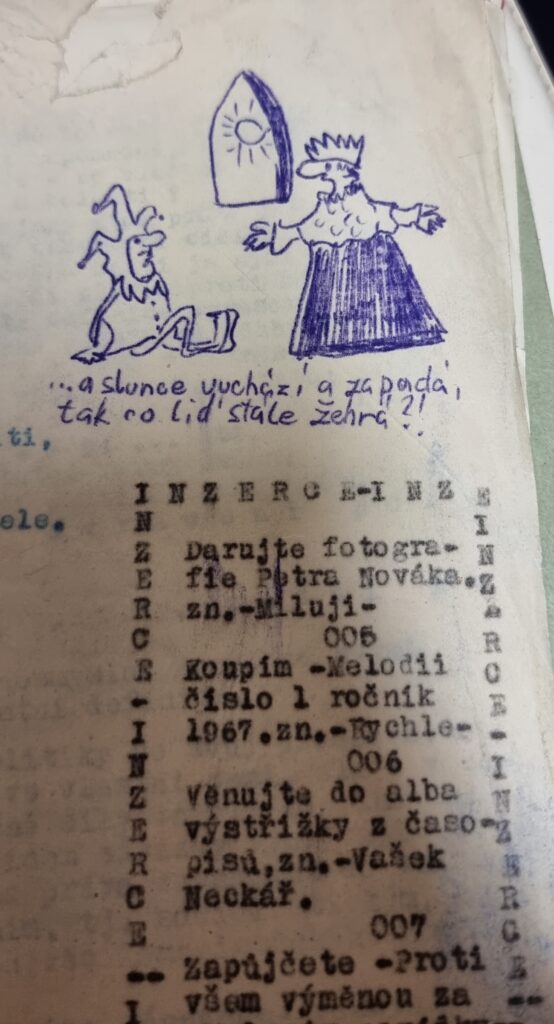 ...a slunce vychází a zapadá,
tak co lid stále žehrá?!
ti,
ele.
INZERCE-INZ
Darujte fotogra-
fie Petra Nováka.
zn.-Miluji-
005
Koupím -Melodii
číslo 1 ročník
1967.zn.-Rychle-
006
Věnujte do alba
výstřižky z časo-
pisů,zn.-Vašek
Neckář.
007
Zapůjčete -Proti
všem výměnou za
I
N
Z
E
R
C
E
-
I
N
Z
E
R
C
E
--
I
E
I
N
Z
E
R
C
E
-
I
N
Z
E
R
C
E
--